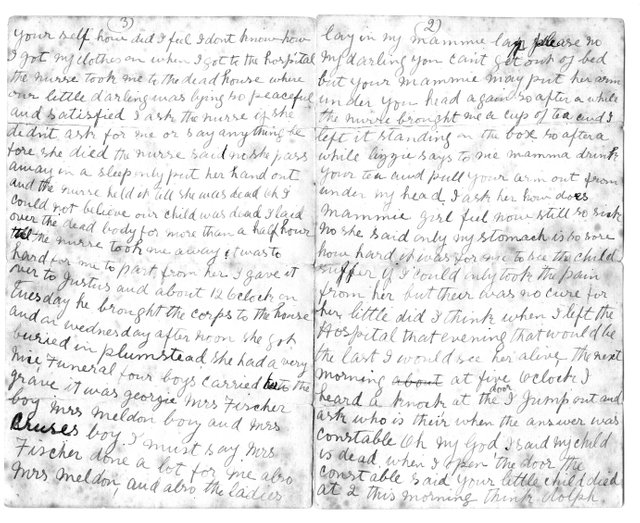 (2)
lay in my mammie lap please no
my darling you can't get out of bed
but your mammie may put her arm
under you head again so after a while
the nurse brought me a cup of tea and I
left it standing on the box so after a
while lizzie says to me mamma drink
your tea and pull your arm out from
under my head, I ask her how does
mammie girl ful now still so sick
no she said only my stomach is so sore
how hard it was for me to see the child
suffer if I could only took the pain
from her but their was no cure for
her little did I think when I left the
Hospital that evening that would be
the last I would see her alive The next
morning about at five Oclock I
heard a knock at the door I jump out and
ask who is their when the answer was
Constable Oh my God I said my child
is dead, when I open the door the
constable said your little child died
at 2 this morning think dolph.
(3)
your self how did I ful I dont know how
I got my clothes on when I got to the hospital
the nurse took me to the dead house where
our little darling was lying so peaceful
and satisfied I ask the nurse if she
didnt ask for me or say anything be
fore she died the nurse said no she pass
away in a sleep only put her hand out
and the nurse held it till she was dead Oh I
could not believe our child was dead I laid
over the dead body for more than a half hour
till the nurse took me away it was to
hard for me to part from her I gave it
over to Justus and about 12 Oclock on
Tuesday he brought the corps to the house
and on wednesday after noon she got
buried in plumstead she had a very
nice Funeral four boys carried her to the
grave it was georgie Mrs Fischer
boy Mrs Meldon boy and Mrs
Cruses boy, I must say Mrs
Fischer done a lot for me also
Mrs Meldon, and also the ladies